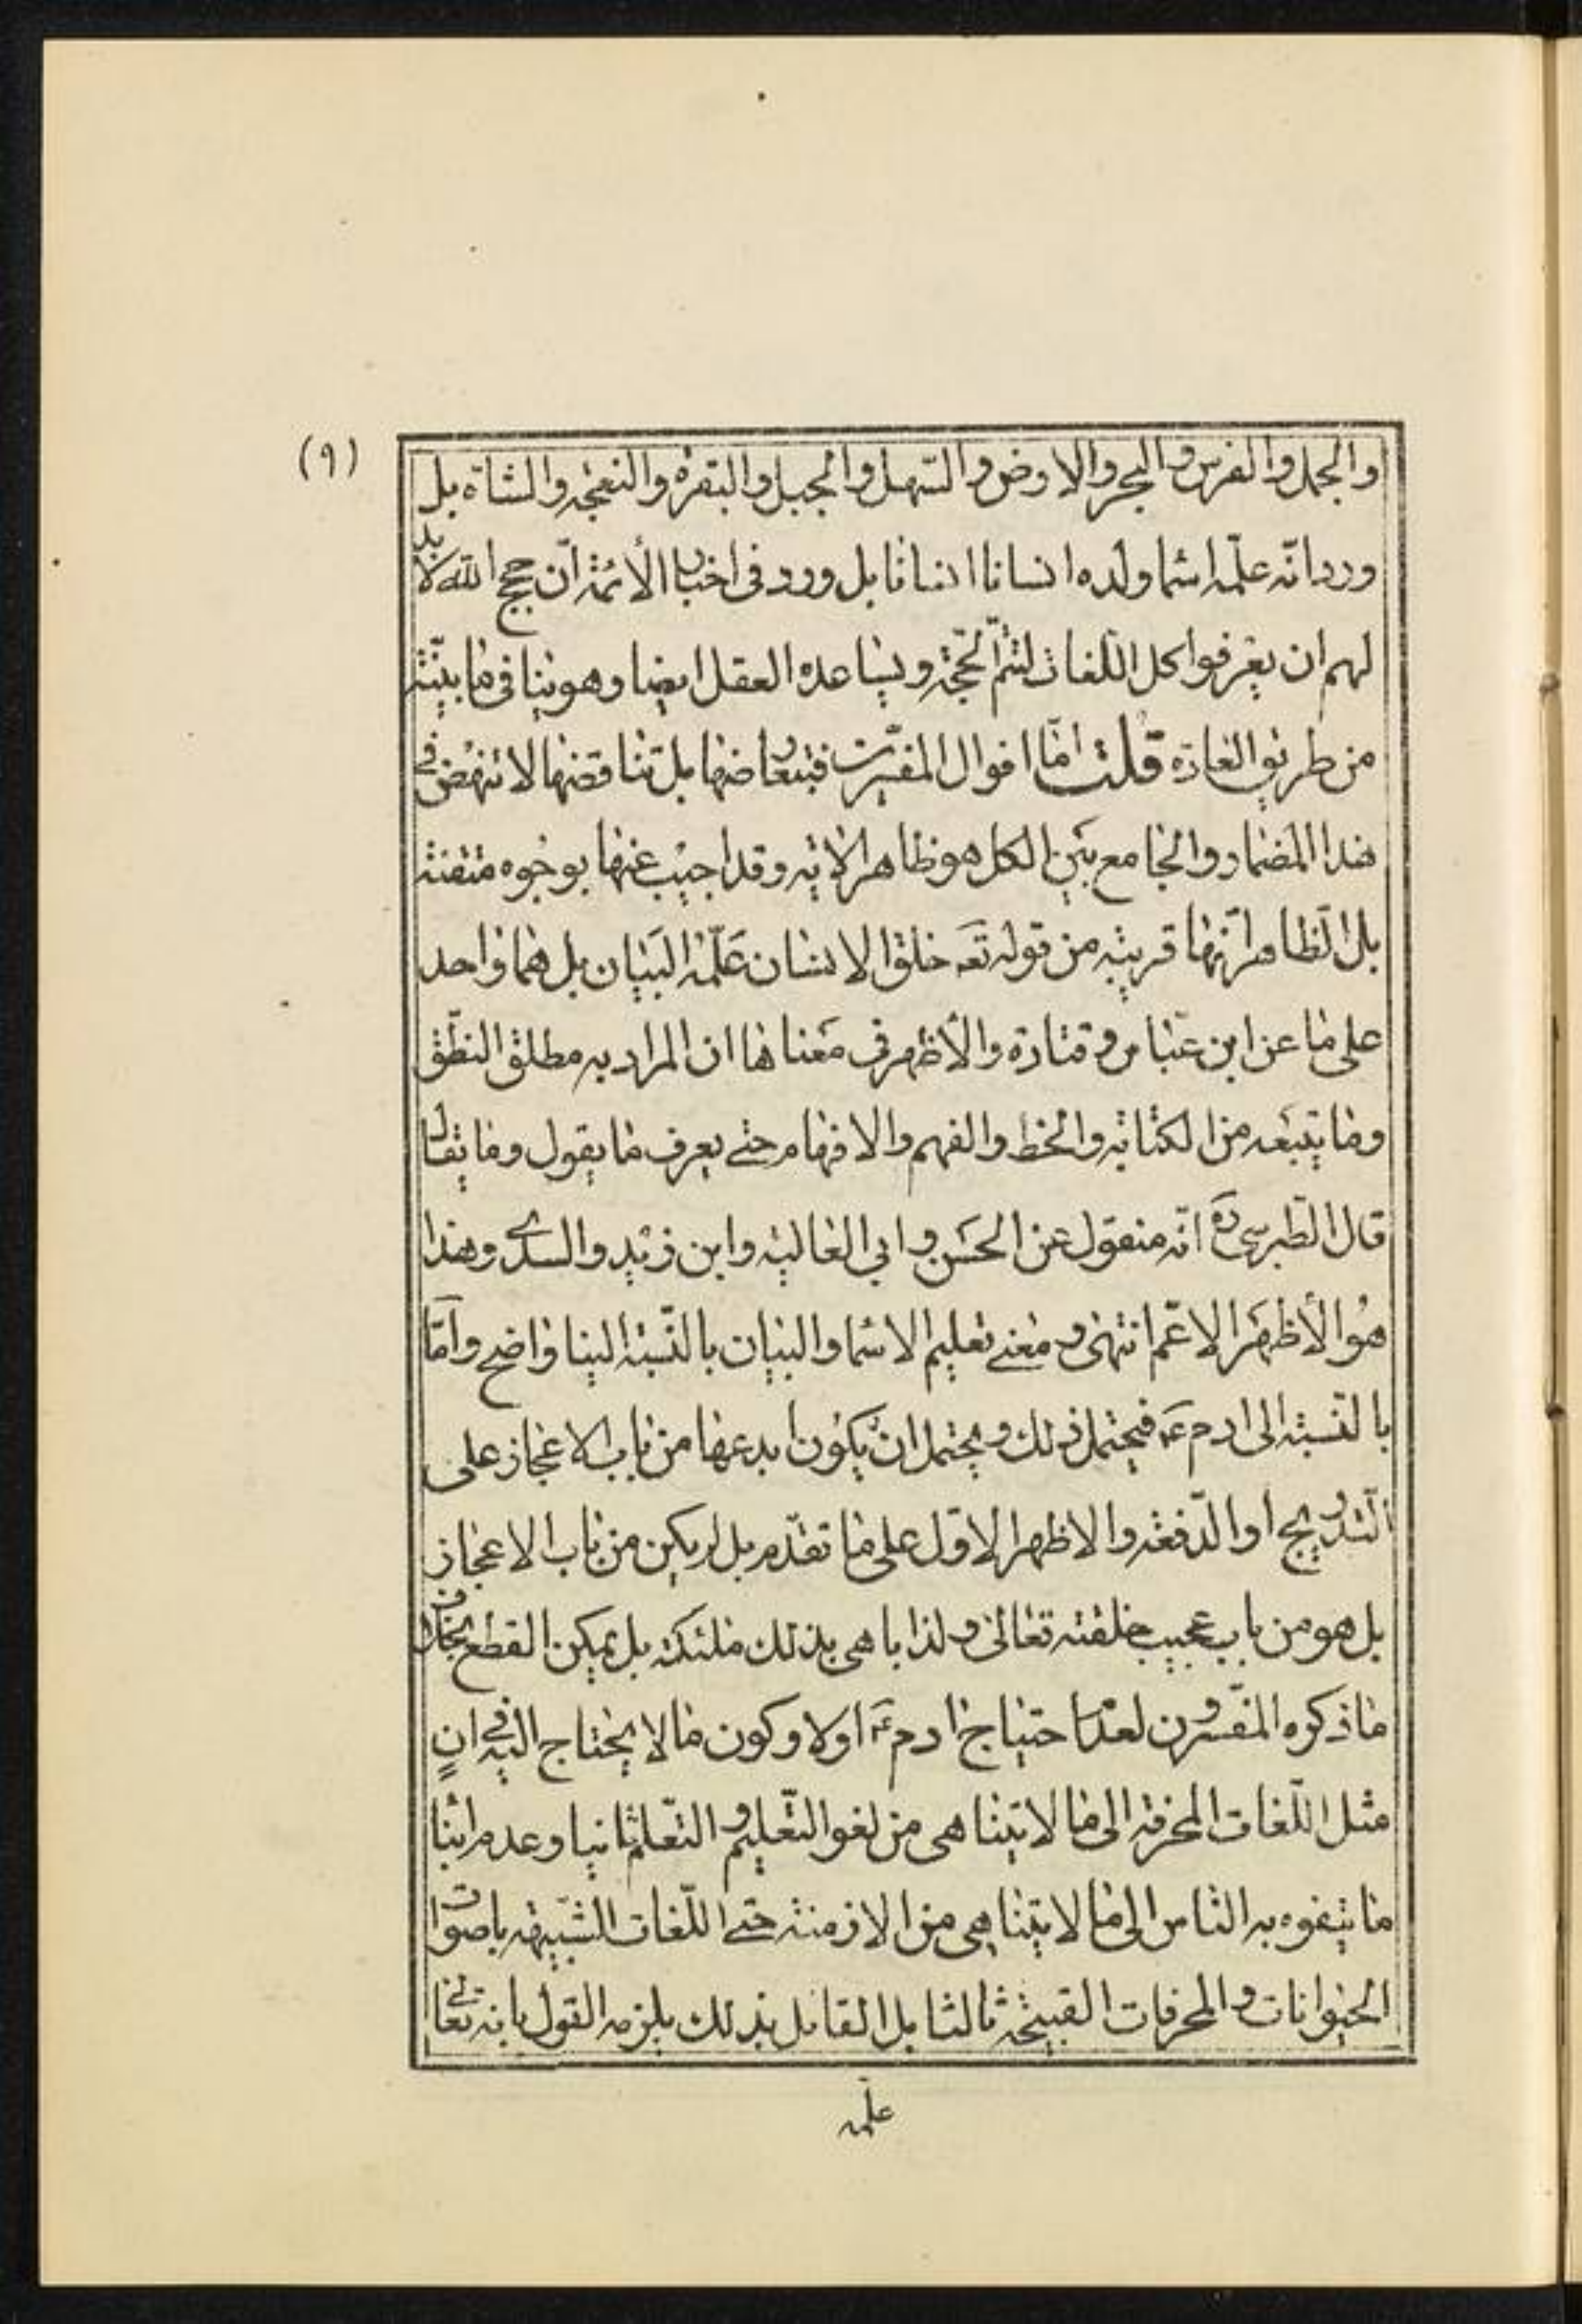 (٩)
والجمل والفرس والبحر والارض والسّهل والجبل والبقرة والنعجة والشاة بل
ورد انّه علّمه اسما ولده انسانا انسانا بل ورد فى اخبار الأئمّة انّ حجج اللّه لا بد
لهم ان يعرفوا كل اللّغات لتتمّ الحجّة ويساعده العقل ايضا وهو ينافى ما بيّنته
من طريق العادة قلت امّا اقوال المفسّرين فبتعارضها بل تناقضها لا تنهض فى
هذا المضمار والجامع بين الكل هو ظاهر الاية وقد اجيب عنها بوجوه متقنة
بل الظّاهر انّها قريبة من قوله تعه خلق الانسان علّمه البيان بل هما واحد
على ما عن ابن عبّاس وقتادة والأظهر فى معناها ان المراد به مطلق النطّق
وما يتبعه من الكتابة والخط والفهم والافهام حتى يعرف ما يقول وما يقال
قال الطّبرسى ره انّه منقول عن الحسن وابى العالية وابن زيد والسدى وهذا
هو الأظهر الاعّم انتهى ومعنى تعليم الاسما والبيان بالنّسبة الينا واضح وامّا
بالنّسبة الى ادم ع فيحتمل ذلك ويحتمل ان يكون ابدعها من باب الاعجاز على
التدّريج او الدّفعة والاظهر الاوّل على ما تقدّم بل لم يكن من باب الاعجاز
بل هو من باب عجيب خلقته تعالى ولذا باهى بذلك ملئكته بل يمكن القطع بخلاف
ما ذكره المفّسرون لعدم احتياج ادم ع اولا وكون ما لا يحتاج اليه فى ان
مثل اللّغات المحرفة الى ما لا يتناهى من لغو التّعليم والتّعلم ثانيا وعدم اتيا
ما يتفوه به الناس الى ما لا يتناهى من الازمنة حتى اللّغات الشّبيهة باصوات
الحيوانات والمحرفات القبيحة ثالثا بل القائل بذلك يلزمه القول بانه تعالى
علّمه